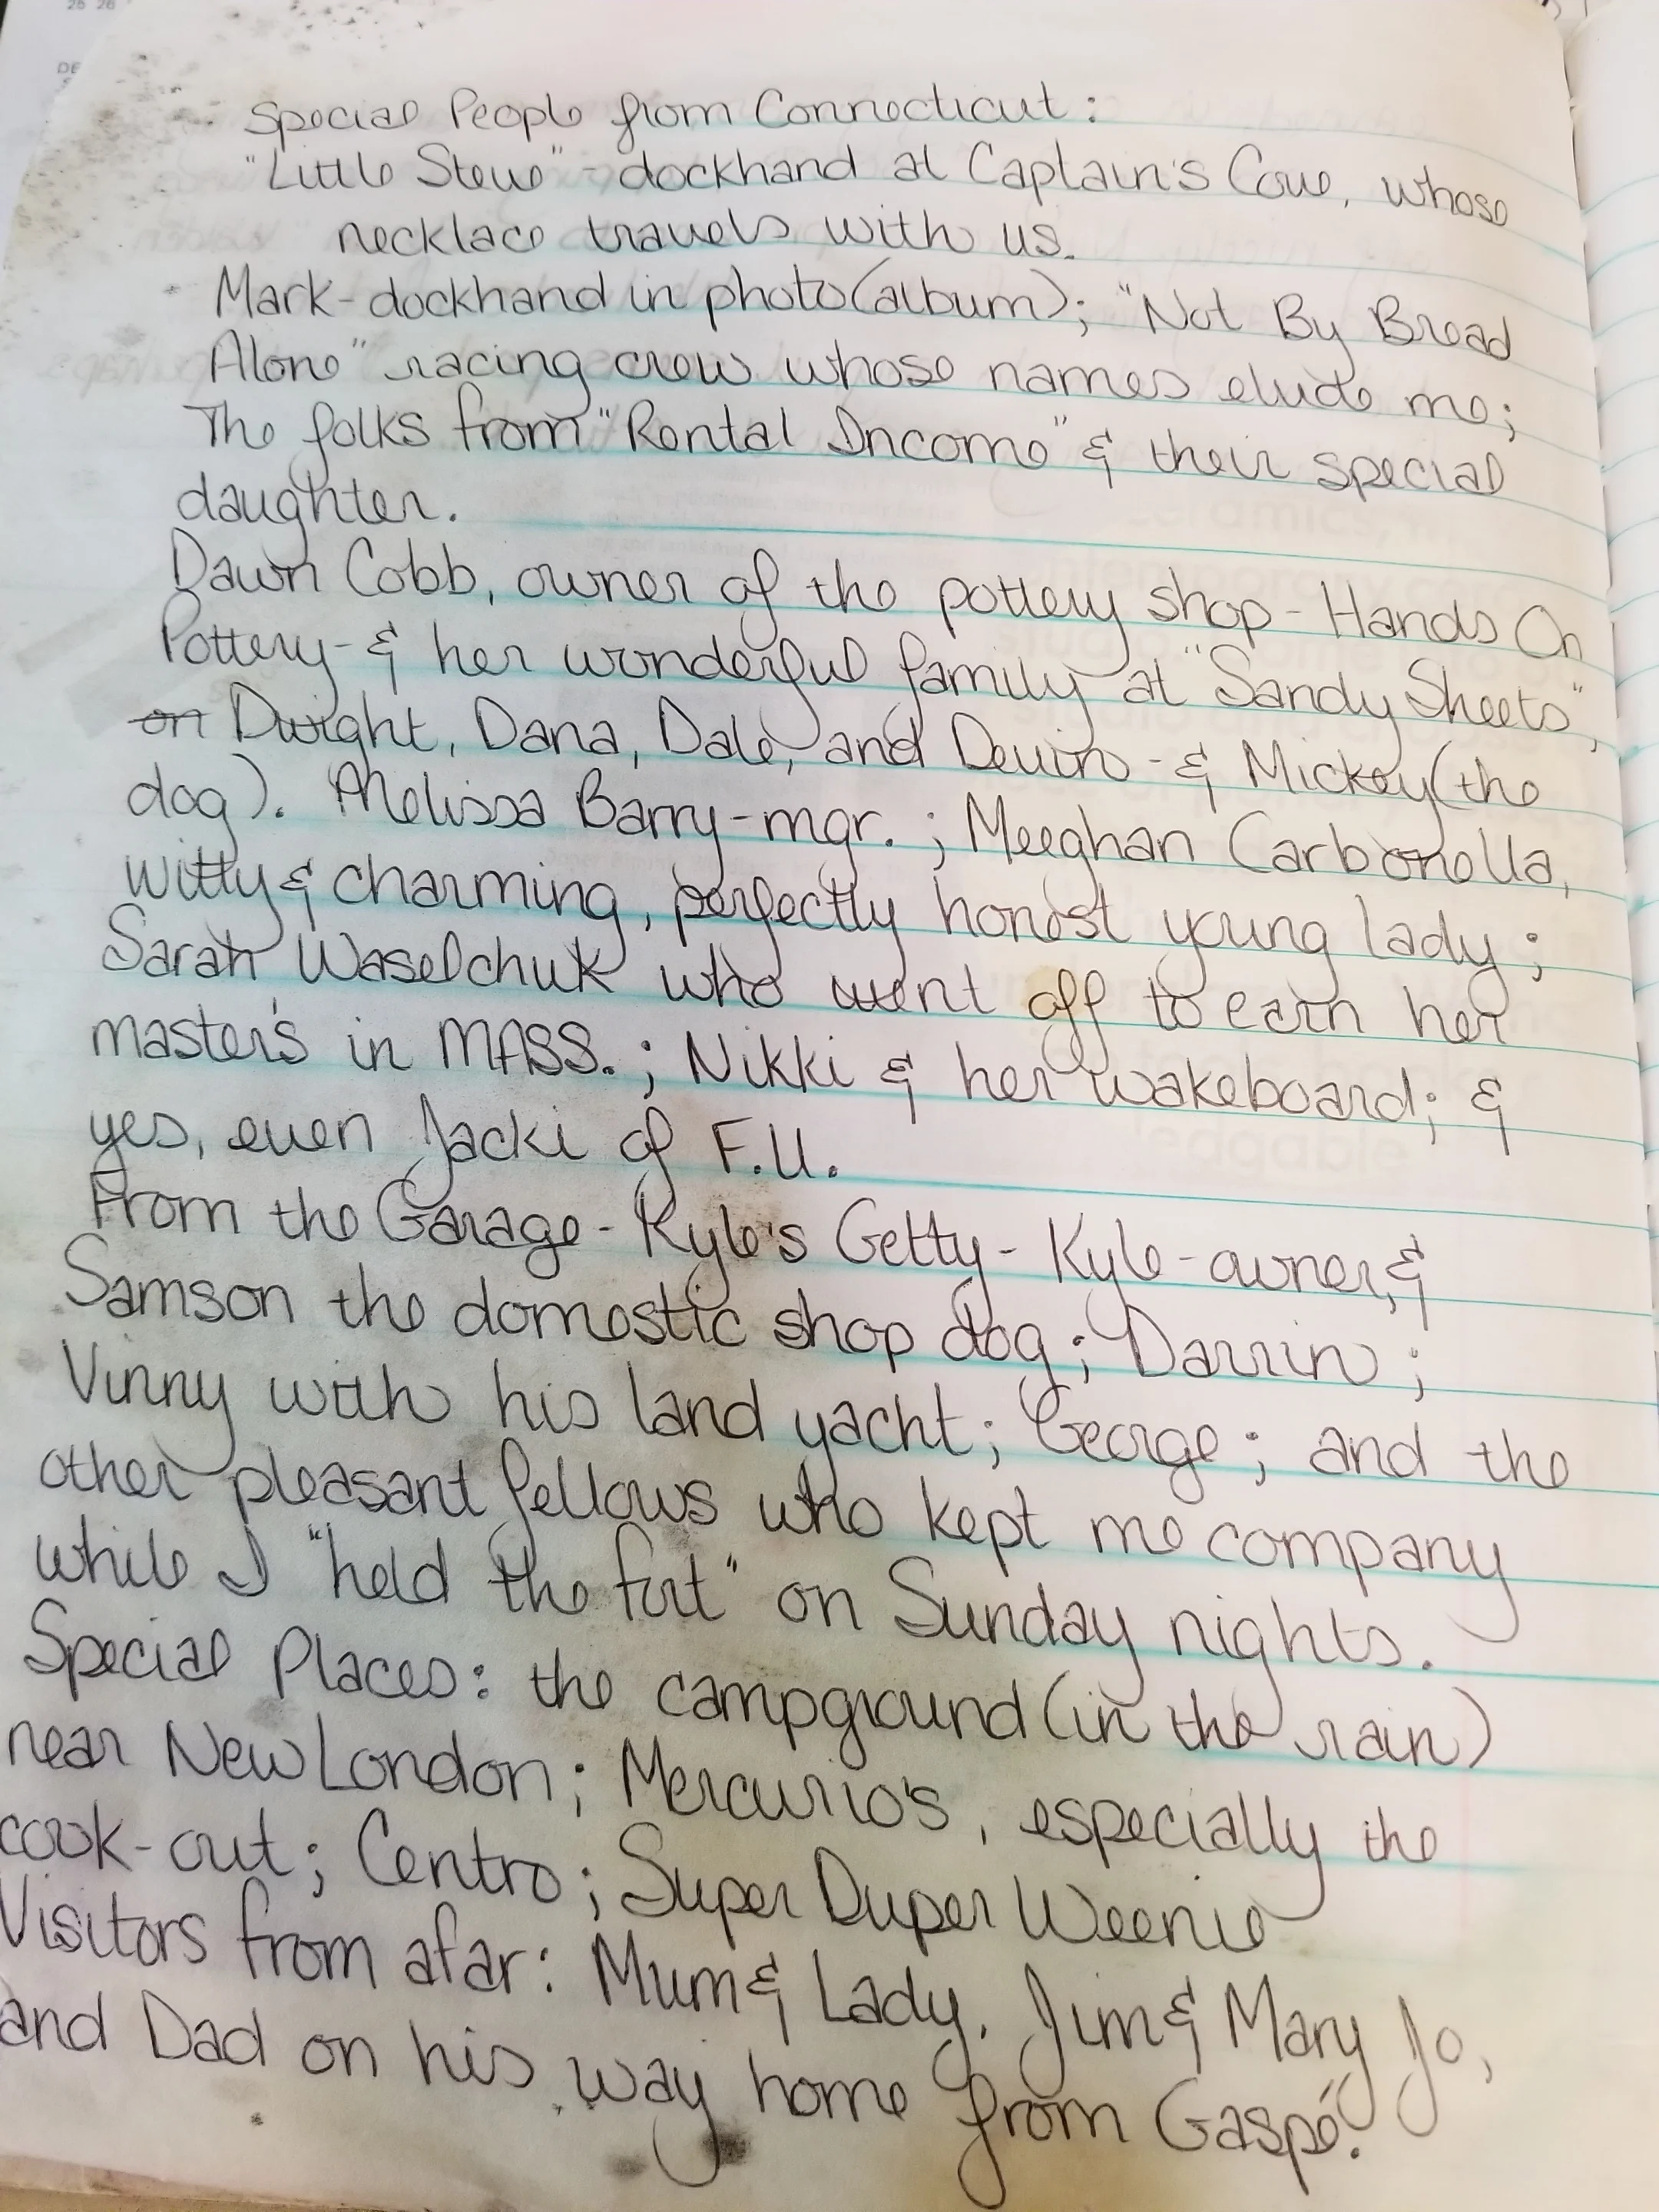 Special People from Connecticut:
"Little Steve" - dockhand at Captain's Cove, whose
necklace travels with us.
Mark - dockhand in photo (album); "Not By Bread
Alone" racing crew whose names elude me;
The folks from "Rental Income" & their special
daughter.
Dawn Cobb, owner of the pottery shop - Hands On
Pottery - & her wonderful family at "Sandy Sheets",
on Dwight, Dana, Dale, and Devin - & Mickey (the
dog). Melissa Barry - mgr. ; Meeghan Carbonella,
witty & charming, perfectly honest young lady ;
Sarah Waselchuk who went off to earn her
master's in MASS. ; Nikki & her wakeboard; &
yes, even Jacki of F.U.
From the Garage - Kyle's Getty - Kyle - owner, &
Samson the domestic shop dog ; Darrin ;
Vinny with his land yacht ; George ; and the
other pleasant fellows who kept me company
while I "held the fort" on Sunday nights.
Special Places: the campground (in the rain)
near New London ; Mercurio's, especially the
cook-out ; Centro ; Super Duper Weenie
Visitors from afar: Mum & Lady, Jim & Mary Jo,
and Dad on his way home from Gaspé!